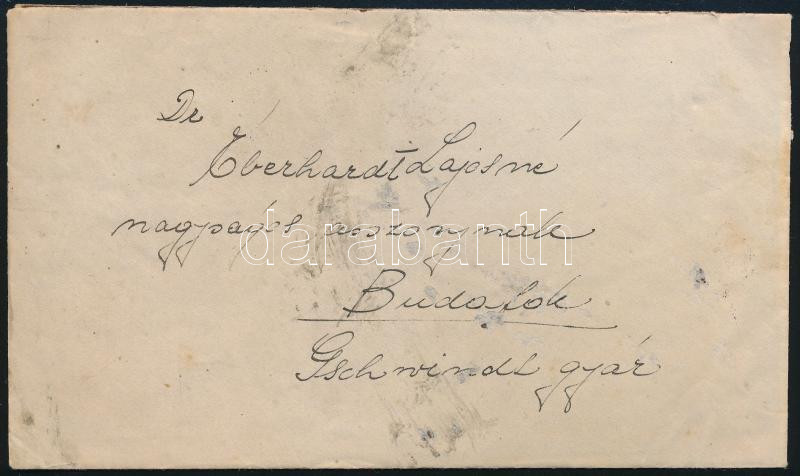 Dr
Éberhardt Lajosné
nagyságos asszonynak
darabanth
Budafok
Gschwindt gyár